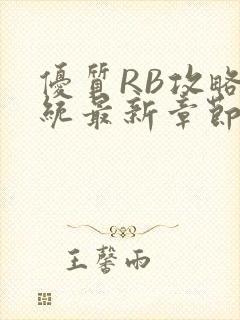 優質RB攻略
統最新章節
王馨雨